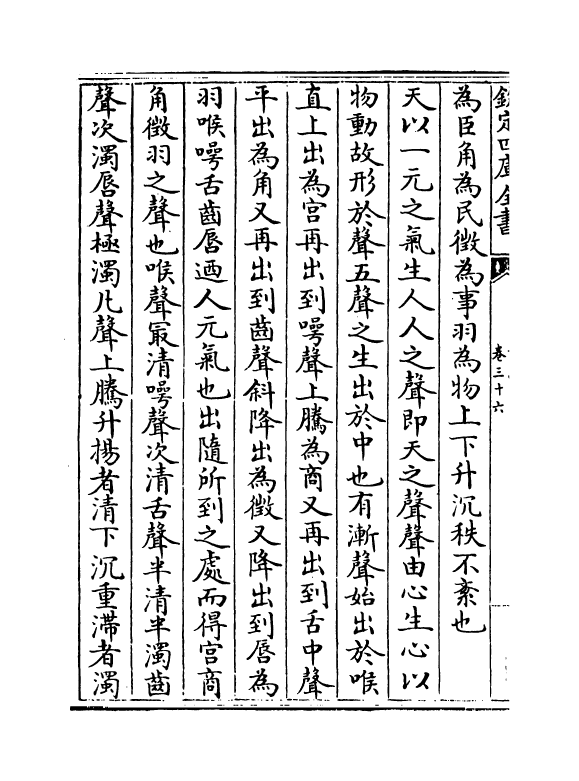 欽定四庫全書
卷三十六
為臣角為民徵為事羽為物上下升沉秩不紊也
天以一元之氣生人人之聲即天之聲聲由心生心以
物動故形於聲五聲之生出於中也有漸聲始出於喉
直上出為宫再出到㗁聲上騰為商又再出到舌中聲
平出為角又再出到齒聲斜降出為徵又降出到唇為
羽喉㗁舌齒唇迺人元氣也出隨所到之處而得宫商
角徵羽之聲也喉聲㝡清㗁聲次清舌聲半清半濁齒
聲次濁唇聲極濁凡聲上騰升揚者清下沉重滯者濁